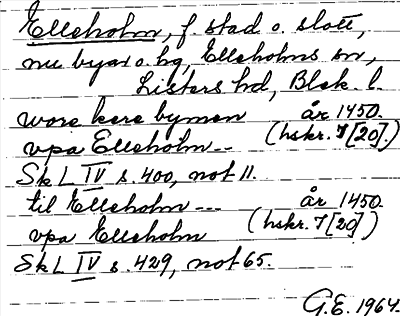 Elleholm, f. stad o. slott,
nu byar o. hg, Elleholms sn,
Listers hd, Blek. l.
wore kere bymen år 1450.
vpa Elleholm -- (hskr. 7[20].)
Sk L IV s. 400, not 11.
til Elleholm --- år 1450.
vpa Elleholm (hskr. 7[20])
Sk L IV s. 429, not 65.
G.E. 1964.